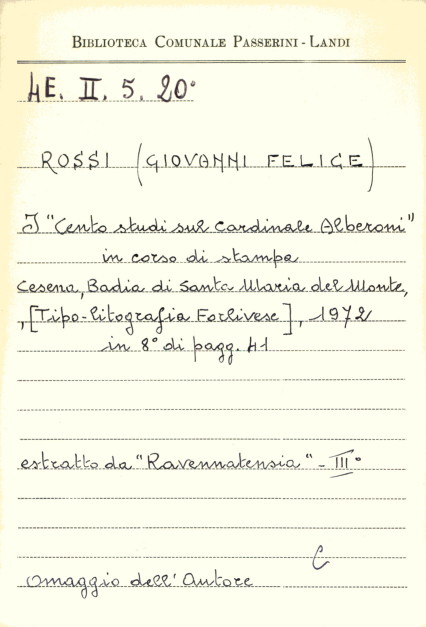 BIBLIOTECA COMUNALE PASSERINI - LANDI
4E. II. 5. 20°
ROSSI (GIOVANNI FELICE)
I "Cento studi sul Cardinale Alberoni"
in corso di stampa
Cesena, Badia di Santa Maria del Monte,
, [Tipo-litografia Forlivese], 1972
in 8° di pagg. 41
estratto da "Ravennatensia" - III°
C
Omaggio dell'Autore